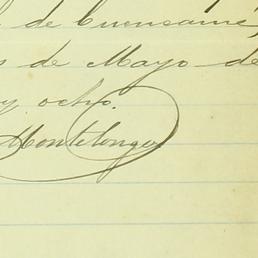 de Cuencamé,
de Mayo de
y ocho.
Montelongo